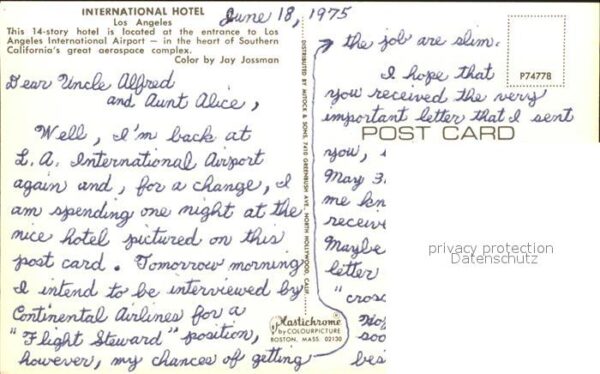 INTERNATIONAL HOTEL
Los Angeles
This 14-story hotel is located at the entrance to Los
Angeles International Airport — in the heart of Southern
California's great aerospace complex.
Color by Jay Jossman
June 18, 1975
Dear Uncle Alfred
and Aunt Alice,
Well, I'm back at
L.A. International Airport
again and, for a change, I
am spending one night at the
nice hotel pictured on this
post card. Tomorrow morning
I intend to be interviewed by
Continental Airlines for a
"Flight Steward" position,
however, my chances of getting
DISTRIBUTED BY MITOCK & SONS, 7410 GREENBUSH AVE., NORTH HOLLYWOOD, CALIF.
Plastichrome
by COLOURPICTURE
BOSTON, MASS. 02130
the job are slim.
I hope that
you received the very
important letter that I sent
you,
May 3
me
receive
Maybe
letter
"cross
soo
bes
P74778
POST CARD
privacy protection
Datenschutz